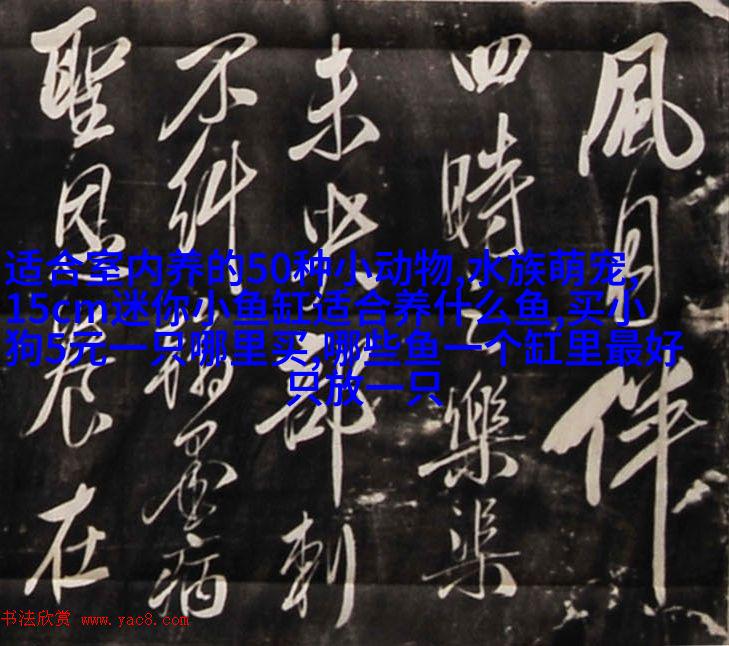 風月伴
四時之樂渠
未部刺
不糾病
聖恩在
适合室内养的50种小动物,水族萌宠,
15cm迷你小鱼缸适合养什么鱼,买小
狗5元一只哪里买,哪些鱼一个缸里最好
只放一只
书法欣赏 www.yac8.com